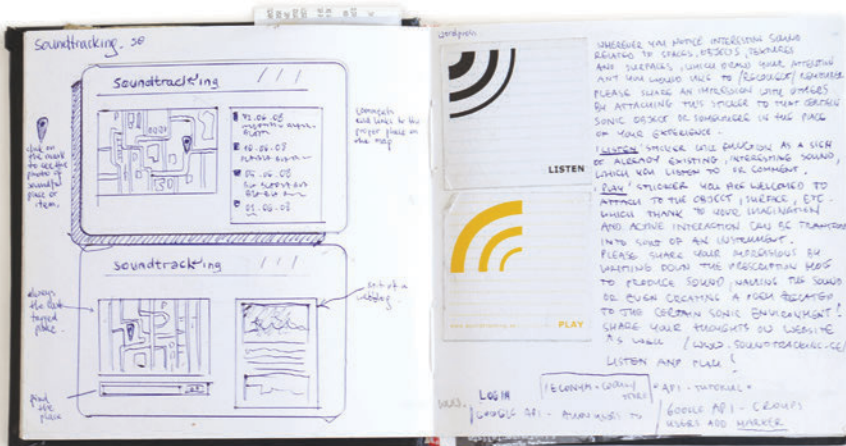 Soundtracking. se
Soundtracking
comments and links to the proper place on the map
click on the mark to see the photo of soundful place or item.
10.06.08
05.06.08
01.06.08
Soundtracking
always the last tagged place.
sort of a weblog
find the place
wordpress
LISTEN
PLAY
WHEREVER YOU NOTICE INTERESTING SOUND
RELATED TO SPACES, OBJECTS, TEXTURES
AND SURFACES, WHICH DRAW YOUR ATTENTION
AND YOU WOULD LIKE TO /RECOLLECT/ REMEMBER
PLEASE SHARE AN IMPRESSION WITH OTHERS
BY ATTACHING THIS STICKER TO THAT CERTAIN
SONIC OBJECT OR SOMEWHERE IN THE PLACE
OF YOUR EXPERIENCE.
'LISTEN' STICKER WILL FUNCTION AS A SIGN
OF ALREADY EXISTING, INTERESTING SOUND,
WHICH YOU LISTEN TO OR COMMENT.
'PLAY' STICKER YOU ARE WELCOMED TO
ATTACH TO THE OBJECT, SURFACE, ETC.
WHICH THANK TO YOUR IMAGINATION
AND ACTIVE INTERACTION CAN BE
INTO SORT OF AN INSTRUMENT.
PLEASE SHARE YOUR IMPRESSIONS BY
WRITING DOWN THE PRESCRIPTION HOW
TO PRODUCE SOUND, NAMING THE SOUND
OR EVEN CREATING A POEM RELATED
TO THE CERTAIN SONIC ENVIRONMENT!
SHARE YOUR THOUGHTS ON WEBSITE
AS WELL /WWW.SOUNDTRACKING.SE/
LISTEN AND PLAY!
LOG IN
API - TUTORIAL
GOOGLE API - ALLOW USERS TO
GOOGLE API - GROUPS
USERS ADD MARKER